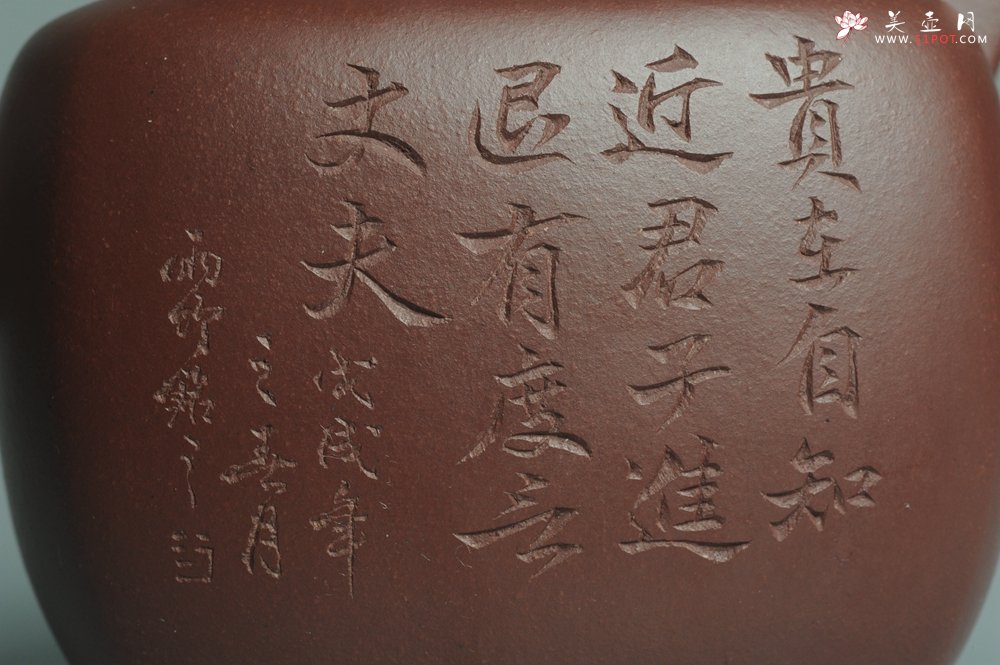 美壶网
WWW.51POT.COM
貴在自知
近君子進
退有度
丈夫 戊戌年
之春月
雨竹銘之